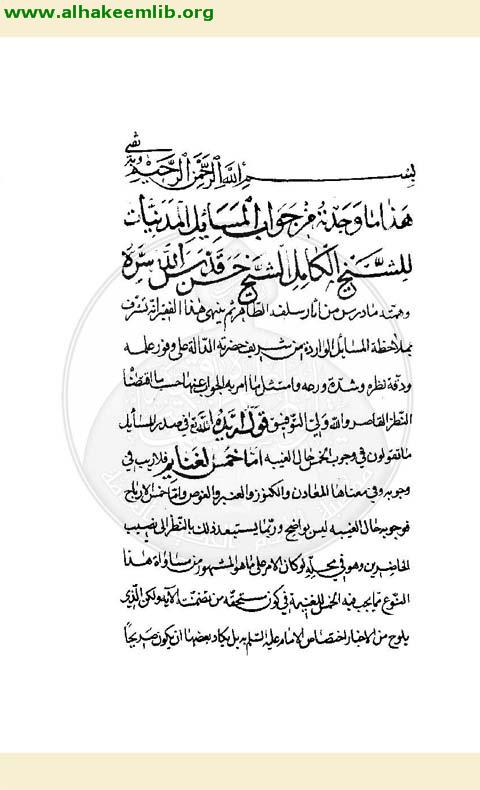 www.alhakeemlib.org
بسم الله الرحمن الرحيم وبه ثقتي
هذا ما وجدته من جواب المسائل المدنيات
للشيخ الكامل الشيخ حسن قدس الله سره
وهمته ما درس من آثار سلفه الطاهر ثم ينهى هذا الفقير انه تشرف
بملاحظة المسايل الواردة من شريف حضرته الدالة على وفور علمه
ودقة نظره وشدة ورعه وامتثل ما امر به الجواب عنها حسب ما اقتضاه
النظر القاصر والله ولي التوفيق قوله ايده الله تع في صدر المسايل
ما تقولون في وجوب الخمس حال الغيبه اما خمس الغنايم فلا ريب في
وجوبه وفي معناها المعادن والكنوز والعنبر والغوص واما خمس الارباح
فوجوبه حال الغيبه ليس بواضح وربما يستبعد ذلك بالنظر الى نصيب
الحاضرين وهو في محله لو كان الامر على ما هو المشهور من مساواة هذا
النوع لما يجب فيه الخمس للغنيمة في كون مستحقه من تضمنته الآيه ولكن الذي
يلوح من الاخبار اختصاص الامام عليه السلم به بل يكاد بعضها ان يكون صريحا